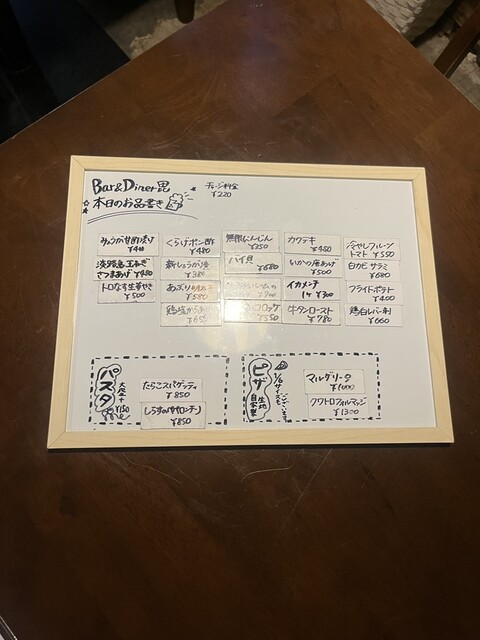 Bar&Diner毘
チャージ料金
¥220
本日のお品書き
みょうが甘酢漬け
くらげポン酢
¥480
無限にんじん
¥350
カクテキ
¥450
冷やしフルーツ
トマト ¥550
淡路島玉ねぎ
さつまあげ ¥480
新しょうが
¥380
バイ貝
¥680
いかつ唐あげ
¥500
白カビサラミ
¥680
トロなす生姜やき
¥500
あぶり
¥580
イカメンチ
1ケ ¥300
フライドポテト
¥400
コロッケ
¥550
牛タンロースト
¥780
鶏白レバー刺
¥660
パスタ
大盛+
¥150
たらこスパゲッティ
¥850
しらすのペペロンチーノ
¥850
ピザ
生地
自家製
マルゲリータ
¥1000
クワトロフォルマッジ
¥1300